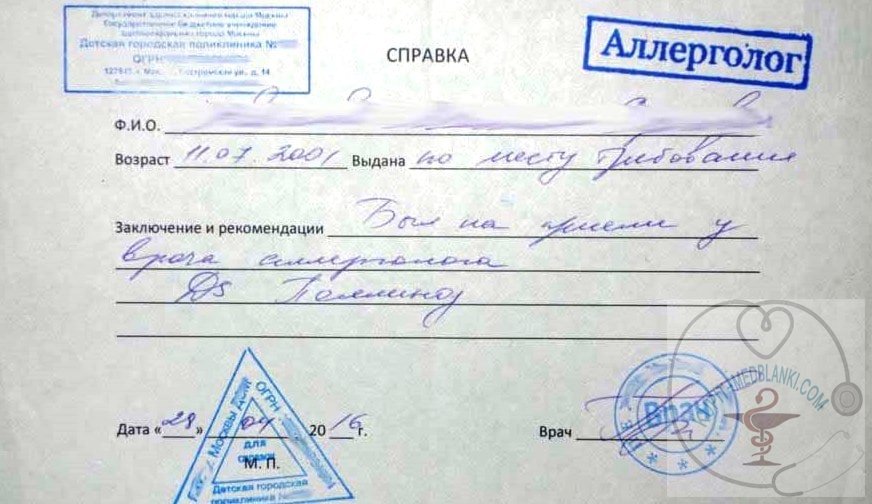 Департамент здравоохранения города Москвы
Государственное бюджетное учреждение
здравоохранения города Москвы
Детская городская поликлиника №
ОГРН
ул., д. 14
СПРАВКА
Аллерголог
Ф.И.О.
Возраст 11.07.2001 Выдана по месту требования
Заключение и рекомендации Был на приеме у
врача аллерголога
Ds Поллиноз
Дата «28» 04 2016 г.
М. П.
Врач
Москвы
ОГРН
для
справок
Детская городская
поликлиника №
Врач
MEDBLANKI.COM